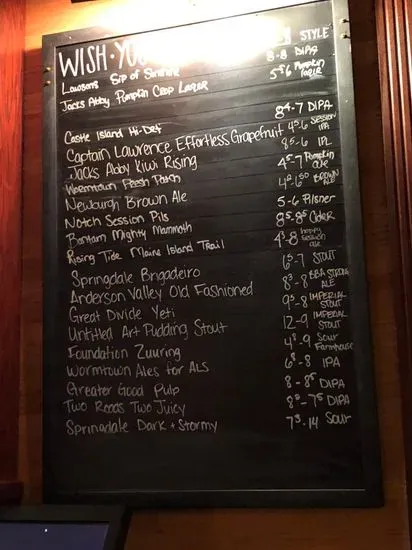 WISH · YOU STYLE
Lawsons Sip of Sunshine 8-8 DIPA
Jacks Abby Pumpkin Crop Lager 5⁵-6 Pumpkin Lager
Castle Island Hi-Def 8⁴-7 DIPA
Captain Lawrence Effortless Grapefruit 4⁵-6 Session IPA
Jacks Abby Kiwi Rising 8⁵-6 IPL
Wormtown Fresh Patch 4⁵-7 Pumpkin ale
Newburgh Brown Ale 4²-6⁵⁰ Brown Ale
Notch Session Pils 5-6 Pilsner
Bantam Mighty Mammoth 8⁵-8⁵ Cider
Rising Tide Maine Island Trail 4³-8 hoppy session ale
Springdale Brigadeiro 6⁵-7 Stout
Anderson Valley Old Fashioned 8³-8 BBA Strong Ale
Great Divide Yeti 9⁵-8 Imperial Stout
Untitled Art Pudding Stout 12-9 Imperial Stout
Foundation Zuuring 4⁸-9 Sour Farmhouse
Wormtown Ales for ALS 6⁸-8 IPA
Greater Good Pulp 8-8⁵ DIPA
Two Roads Two Juicy 8²-7⁵ DIPA
Springdale Dark + Stormy 7³-14 Sour